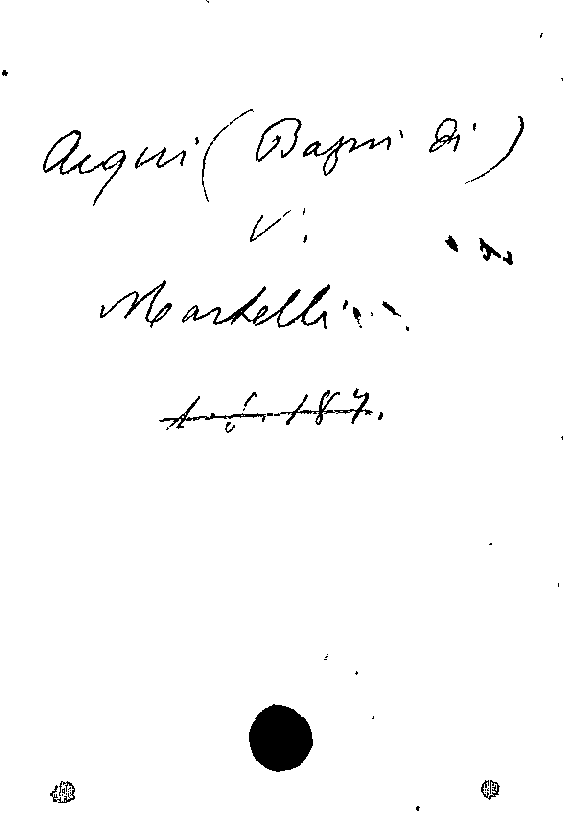 Acqui (Bagni di)
V.
Martelli
187.